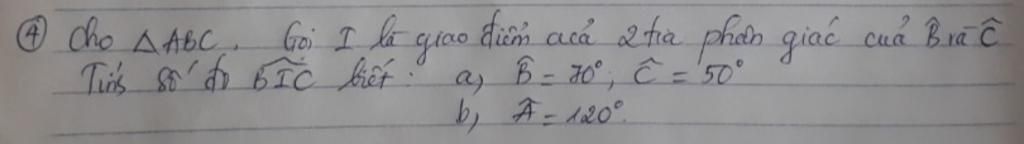 ④ Cho △ABC. Gọi I là giao điểm của 2 tia phân giác cuả B̂ và Ĉ
Tính số đo BIC biết: a, B̂ = 70°; Ĉ = 50°
b, Â = 120°.